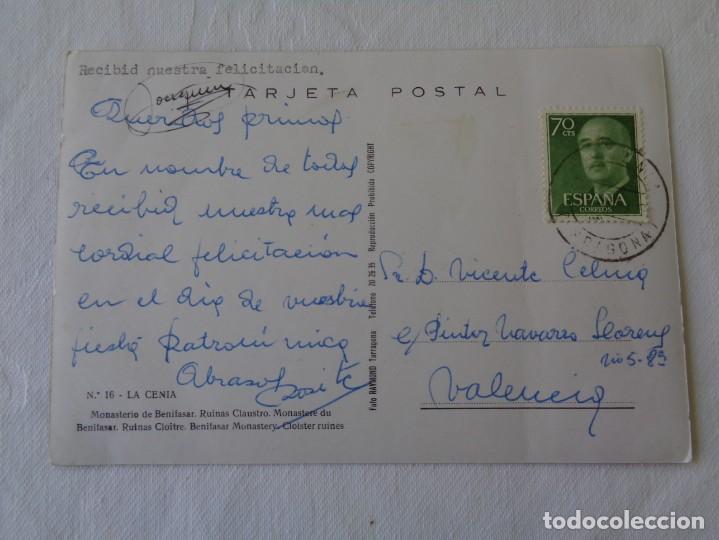 Recibid nuestra felicitacion.
Joaquin
TARJETA POSTAL
Queridos primos
En nombre de todos
recibid nuestra mas
cordial felicitación
en el dia de vuestra
fiesta patronimica
Abrasos Rosita
Nº 16 - LA CENIA
Monasterio de Benifasar. Ruinas Claustro. Monastere du
Benifasar. Ruinas Cloitre. Benifasar Monastery. Cloister ruines
Foto RAYMOND Tarragona Teléfono 20 26 35 Reproducción Prohibida COPYRIGHT
70
CTS
ESPAÑA
CORREOS
Sr. D. Vicente
c/ Pintor Navarro Llorens
Valencia
todocoleccion.net